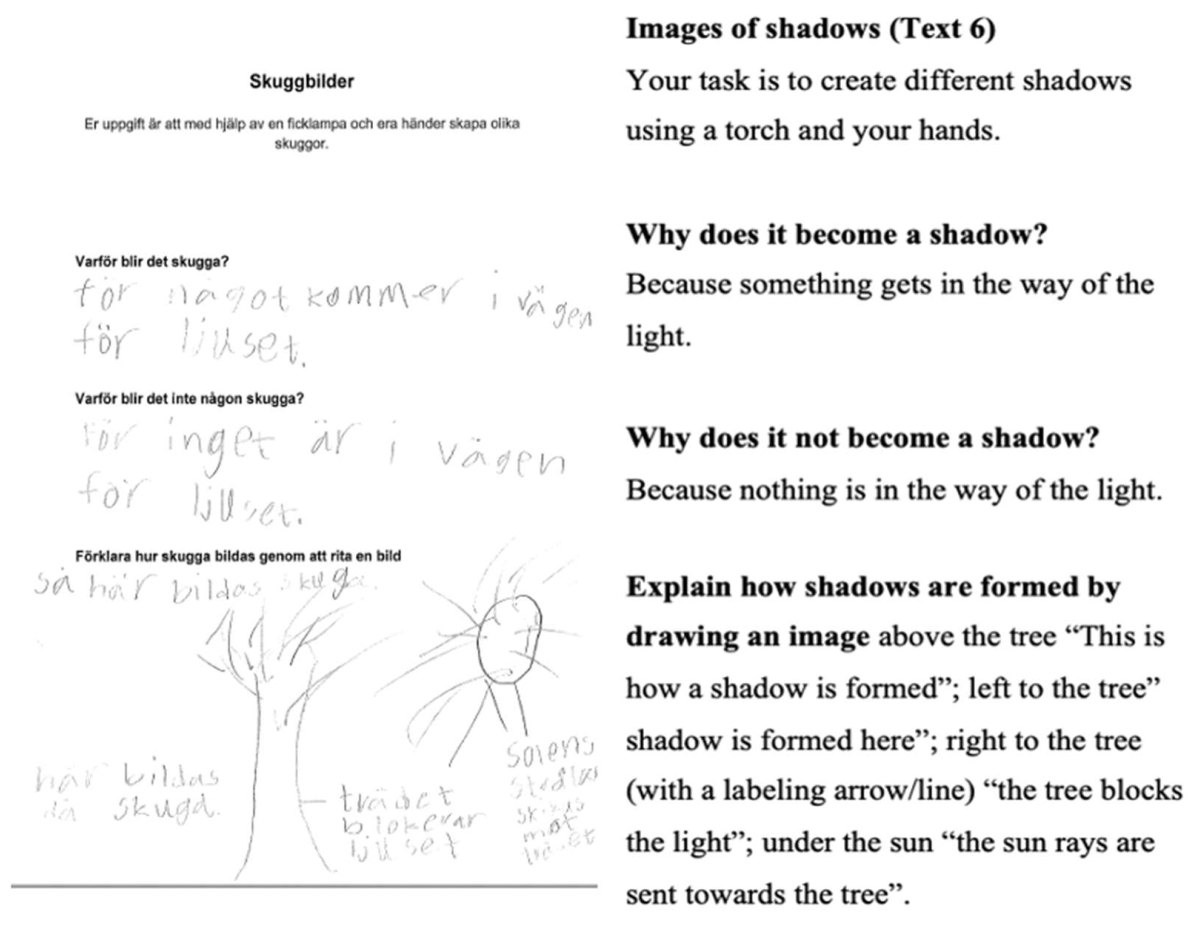 Skuggbilder
Er uppgift är att med hjälp av en ficklampa och era händer skapa olika
skuggor.
Varför blir det skugga?
för något kommer i vägen
för ljuset.
Varför blir det inte någon skugga?
för inget är i vägen
för ljuset.
Förklara hur skugga bildas genom att rita en bild
så här bildas skuga.
här bildas
då skuga.
trädet
blokerar
ljuset
solens
strålar
skikas
mot
trädet
Images of shadows (Text 6)
Your task is to create different shadows
using a torch and your hands.
Why does it become a shadow?
Because something gets in the way of the
light.
Why does it not become a shadow?
Because nothing is in the way of the light.
Explain how shadows are formed by
drawing an image above the tree “This is
how a shadow is formed”; left to the tree”
shadow is formed here”; right to the tree
(with a labeling arrow/line) “the tree blocks
the light”; under the sun “the sun rays are
sent towards the tree”.